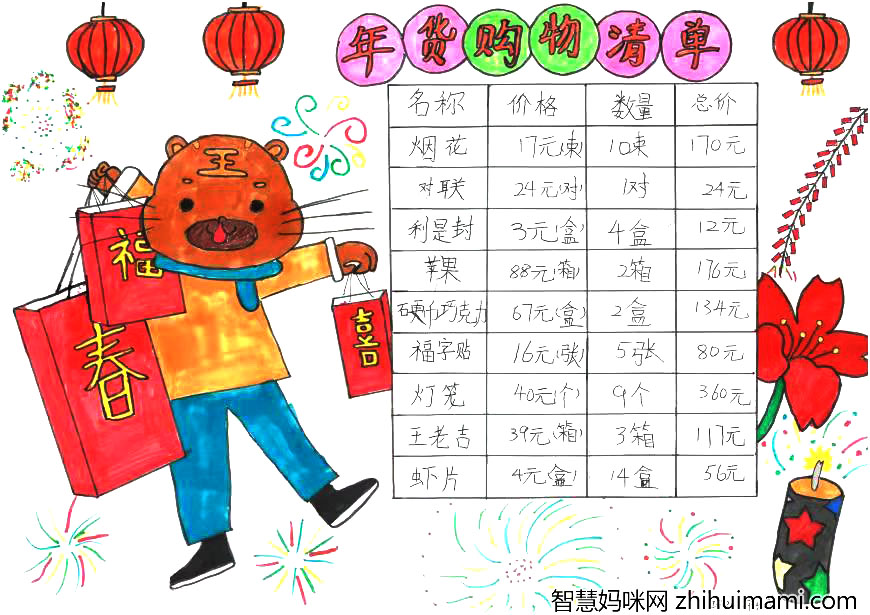 年货购物清单
名称 价格 数量 总价
烟花 17元(束) 10束 170元
对联 24元(对) 1对 24元
利是封 3元(盒) 4盒 12元
苹果 88元(箱) 2箱 176元
硬币巧克力 67元(盒) 2盒 134元
福字贴 16元(张) 5张 80元
灯笼 40元(个) 9个 360元
王老吉 39元(箱) 3箱 117元
虾片 4元(盒) 14盒 56元
王
福
春
喜
智慧妈咪网 zhihuimami.com